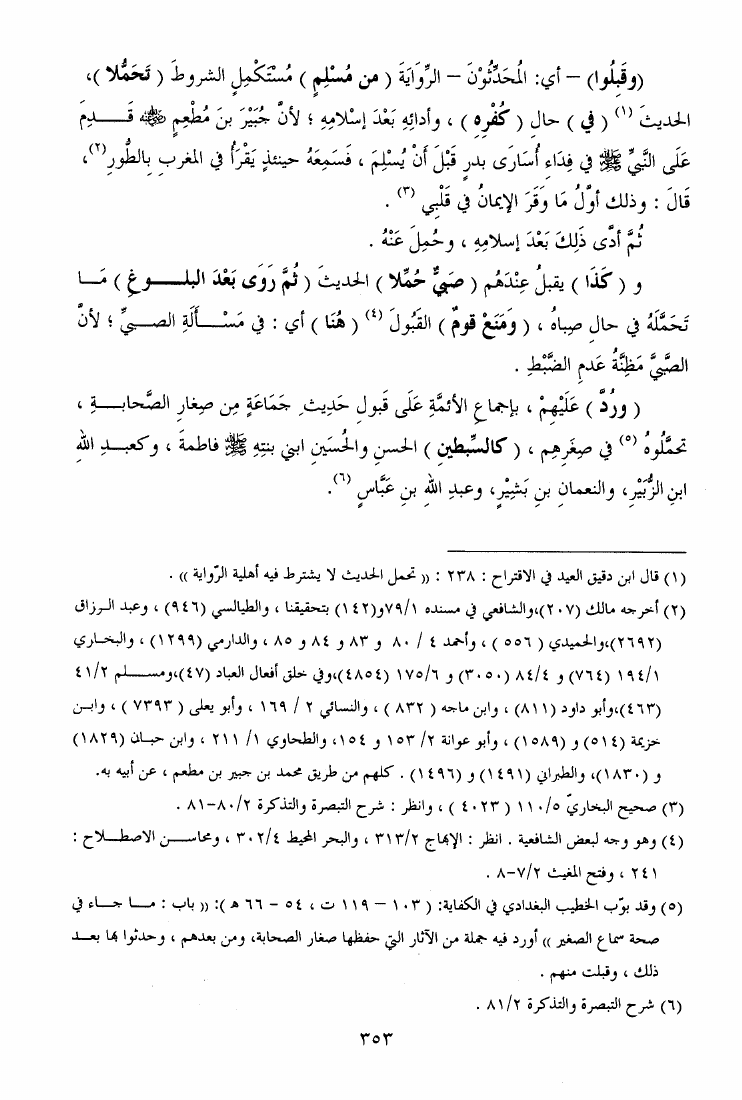 (وقَبِلُوا) – أي: المُحَدِّثُوْنَ – الرِّوَايَةَ ( من مُسْلِمٍ ) مُسْتَكْمِلِ الشروطَ ( تَحَمُّلا )،
الحديثَ (١) ( في ) حالِ ( كُفْرِهِ ) ، وأدائِهِ بَعْدَ إسْلامِهِ ؛ لأنَّ جُبَيْرَ بنَ مُطْعِمٍ ﷺ قَـــدِمَ
عَلَى النَّبِيِّ ﷺ في فِدَاءِ أُسَارَى بدرٍ قَبْلَ أَنْ يُسْلِمَ ، فَسَمِعَهُ حينئذٍ يَقْرَأُ في المغربِ بالطُّورِ(٢)،
قَالَ : وذلك أوَّلُ مَا وَقَرَ الإيمانُ في قَلْبِي (٣) .
ثُمَّ أدَّى ذَلِكَ بَعْدَ إسلامِهِ ، وحُمِلَ عَنْهُ .
و ( كَذَا ) يقبلُ عِنْدَهُم ( صَبِيٌّ حُمِّلا ) الحديثَ ( ثُمَّ رَوَى بَعْدَ البلـــوغِ ) مَـــا
تَحَمَّلَهُ في حالِ صِباهُ ، ( وَمَنَعْ قومٌ ) القُبُولَ (٤) ( هُنَا ) أي : في مَسْـــأَلَةِ الصبـــيِّ ؛ لأنَّ
الصَّبِيَّ مَظِنَّةُ عَدمِ الضَّبْطِ .
( ورُدَّ ) عَلَيْهِمْ ، بإجماعِ الأئمَّةِ عَلَى قبولِ حَدِيثِ جَمَاعَةٍ مِن صِغارِ الصَّحابـــةِ ،
تحمَّلُوهُ (٥) في صِغَرِهِم ، ( كالسِّبطينِ ) الحسنِ والحُسَينِ ابني بنتِهِ ﷺ فاطمةَ ، وكعبـــدِ اللهِ
ابنِ الزُّبَيْرِ، والنعمانِ بنِ بَشِيْرٍ، وعبدِ اللهِ بنِ عَبَّاسٍ (٦).
(١) قال ابن دقيق العيد في الاقتراح : ٢٣٨ : (( تحمل الحديث لا يشترط فيه أهلية الرّواية )) .
(٢) أخرجه مالك (٢٠٧)،والشافعي في مسنده ٧٩/١و(١٤٢) بتحقيقنا ، والطيالسي (٩٤٦) ، وعبد الـرزاق
(٢٦٩٢)،والحميدي ( ٥٥٦ ) ، وأحمد ٤ / ٨٠ و ٨٣ و ٨٤ و ٨٥ ، والدارمي (١٢٩٩) ، والبخـاري
١٩٤/١ (٧٦٤) و ٨٤/٤ (٣٠٥٠) و ١٧٥/٦ (٤٨٥٤)،وفي خلق أفعال العباد (٤٧)،ومســلم ٤١/٢
(٤٦٣)،وأبو داود (٨١١) ، وابن ماجه ( ٨٣٢ ) ، والنسائي ٢ / ١٦٩ ، وأبو يعلى ( ٧٣٩٣ ) ، وابـن
خزيمة (٥١٤) و (١٥٨٩) ، وأبو عوانة ٢/ ١٥٣ و ١٥٤، والطحاوي ١/ ٢١١ ، وابن حبـان (١٨٢٩)
و (١٨٣٠)، والطبراني (١٤٩١) و (١٤٩٦) . كلهم من طريق محمد بن جبير بن مطعم ، عن أبيه به.
(٣) صحيح البخاريّ ١١٠/٥ ( ٤٠٢٣ ) ، وانظر : شرح التبصرة والتذكرة ٨٠/٢-٨١ .
(٤) وهو وجه لبعض الشافعية . انظر : الإبهاج ٣١٣/٢ ، والبحر المحيط ٣٠٢/٤ ، ومحاســن الاصطـلاح :
٢٤١ ، وفتح المغيث ٧/٢-٨ .
(٥) وقد بوّب الخطيب البغدادي في الكفاية: ( ١٠٣ – ١١٩ ت ، ٥٤ - ٦٦ ه ): (( باب : مـا جـاء في
صحة سماع الصغير )) أورد فيه جملة من الآثار التي حفظها صغار الصحابة، ومن بعدهم ، وحدثوا بها بعـد
ذلك ، وقبلت منهم .
(٦) شرح التبصرة والتذكرة ٨١/٢ .
٣٥٣